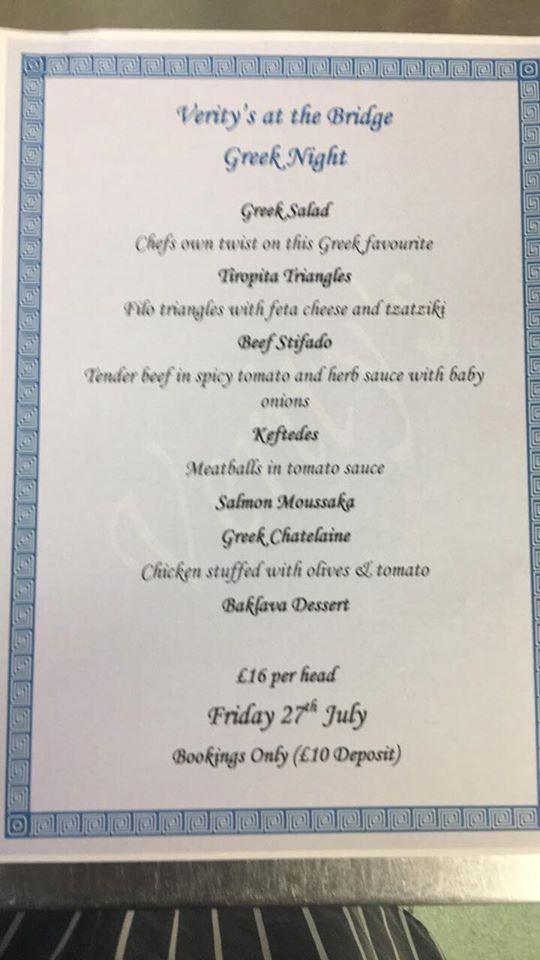 Verity's at the Bridge
Greek Night
Greek Salad
Chefs own twist on this Greek favourite
Tiropita Triangles
Filo triangles with feta cheese and tzatziki
Beef Stifado
Tender beef in spicy tomato and herb sauce with baby
onions
Keftedes
Meatballs in tomato sauce
Salmon Moussaka
Greek Chatelaine
Chicken stuffed with olives & tomato
Baklava Dessert
£16 per head
Friday 27th July
Bookings Only (£10 Deposit)
Verity's